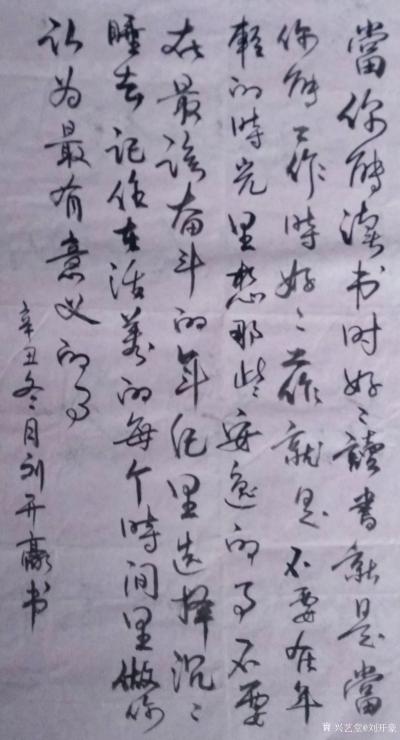 當你能读书时好〻讀書就是當
你能工作時好〻工作就是不要在年
輕的時光里想那些安逸的事不要
在最该奋斗的年纪里选择沉〻
睡去记住在活着的每个時间里做你
认为最有意义的事
辛丑冬月刘开豪书
兴艺堂@刘开豪